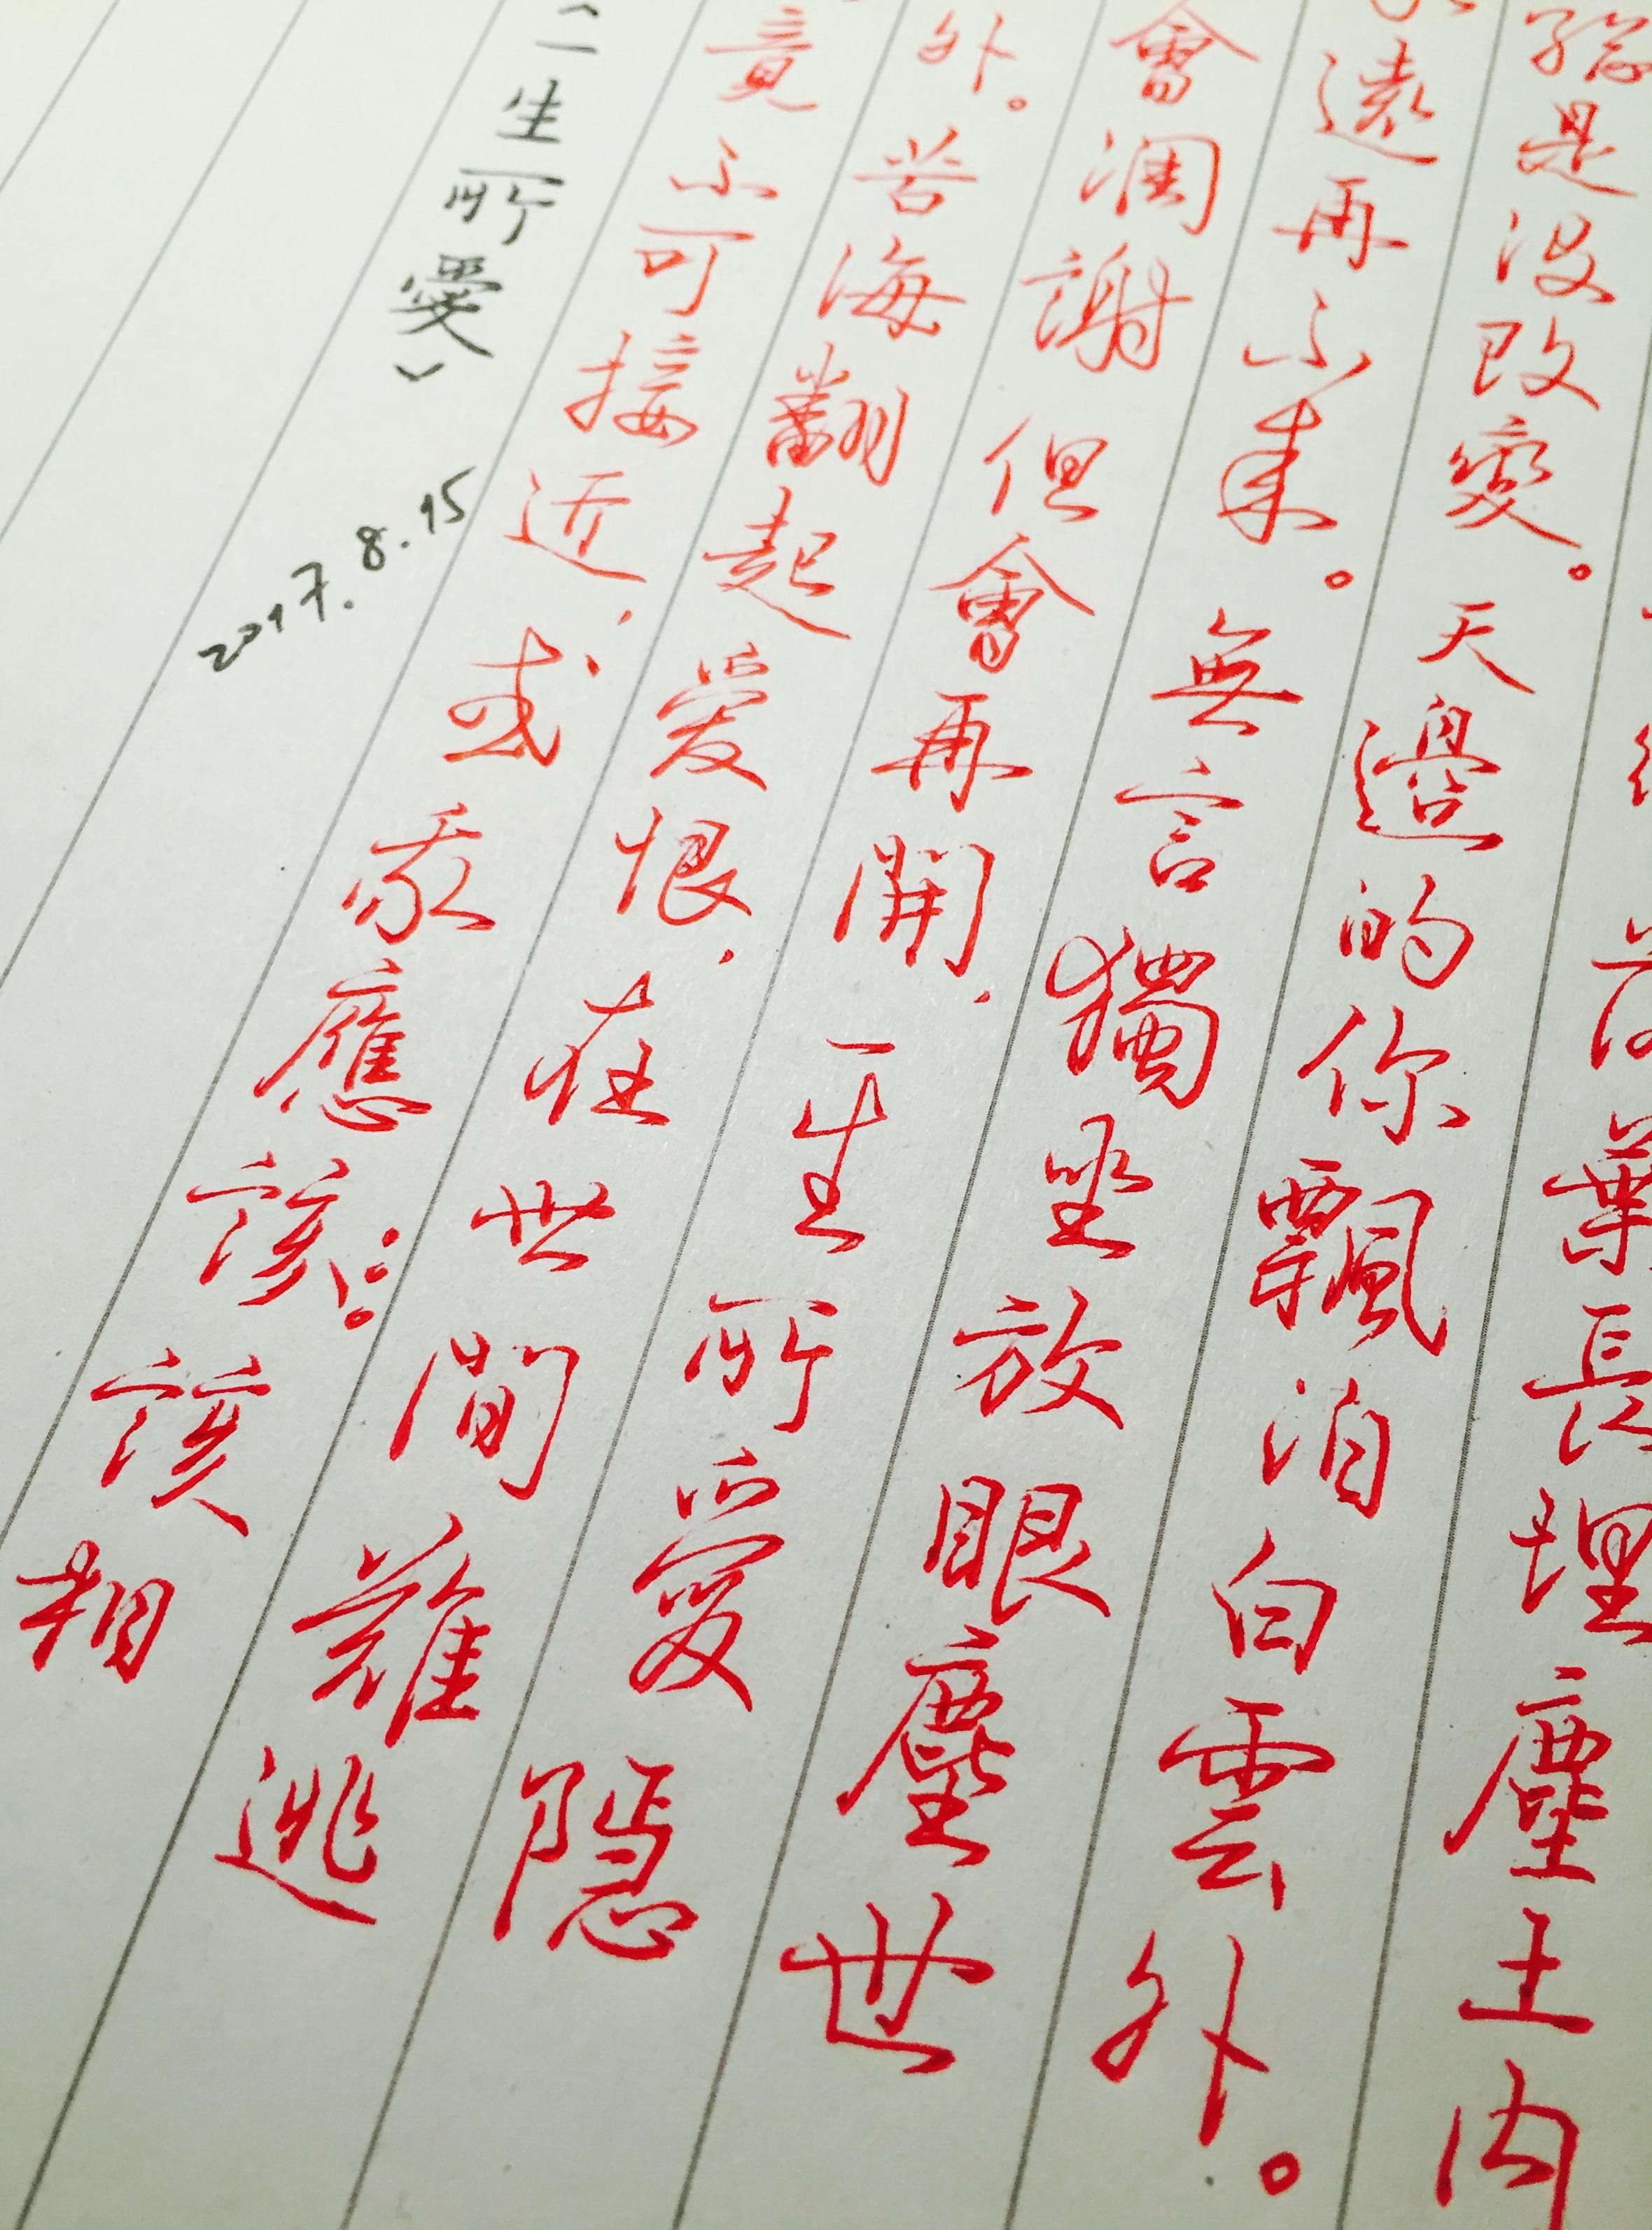 落葉長埋塵土內
總是沒改變。天邊的你飄泊白雲外。
遠再不來。無言獨坐放眼塵世
會凋謝但會再開,一生所愛隱
外。苦海翻起愛恨,在世間難逃
竟不可接近,或我應該⋮。該相
〈一生所愛〉 2017.8.15